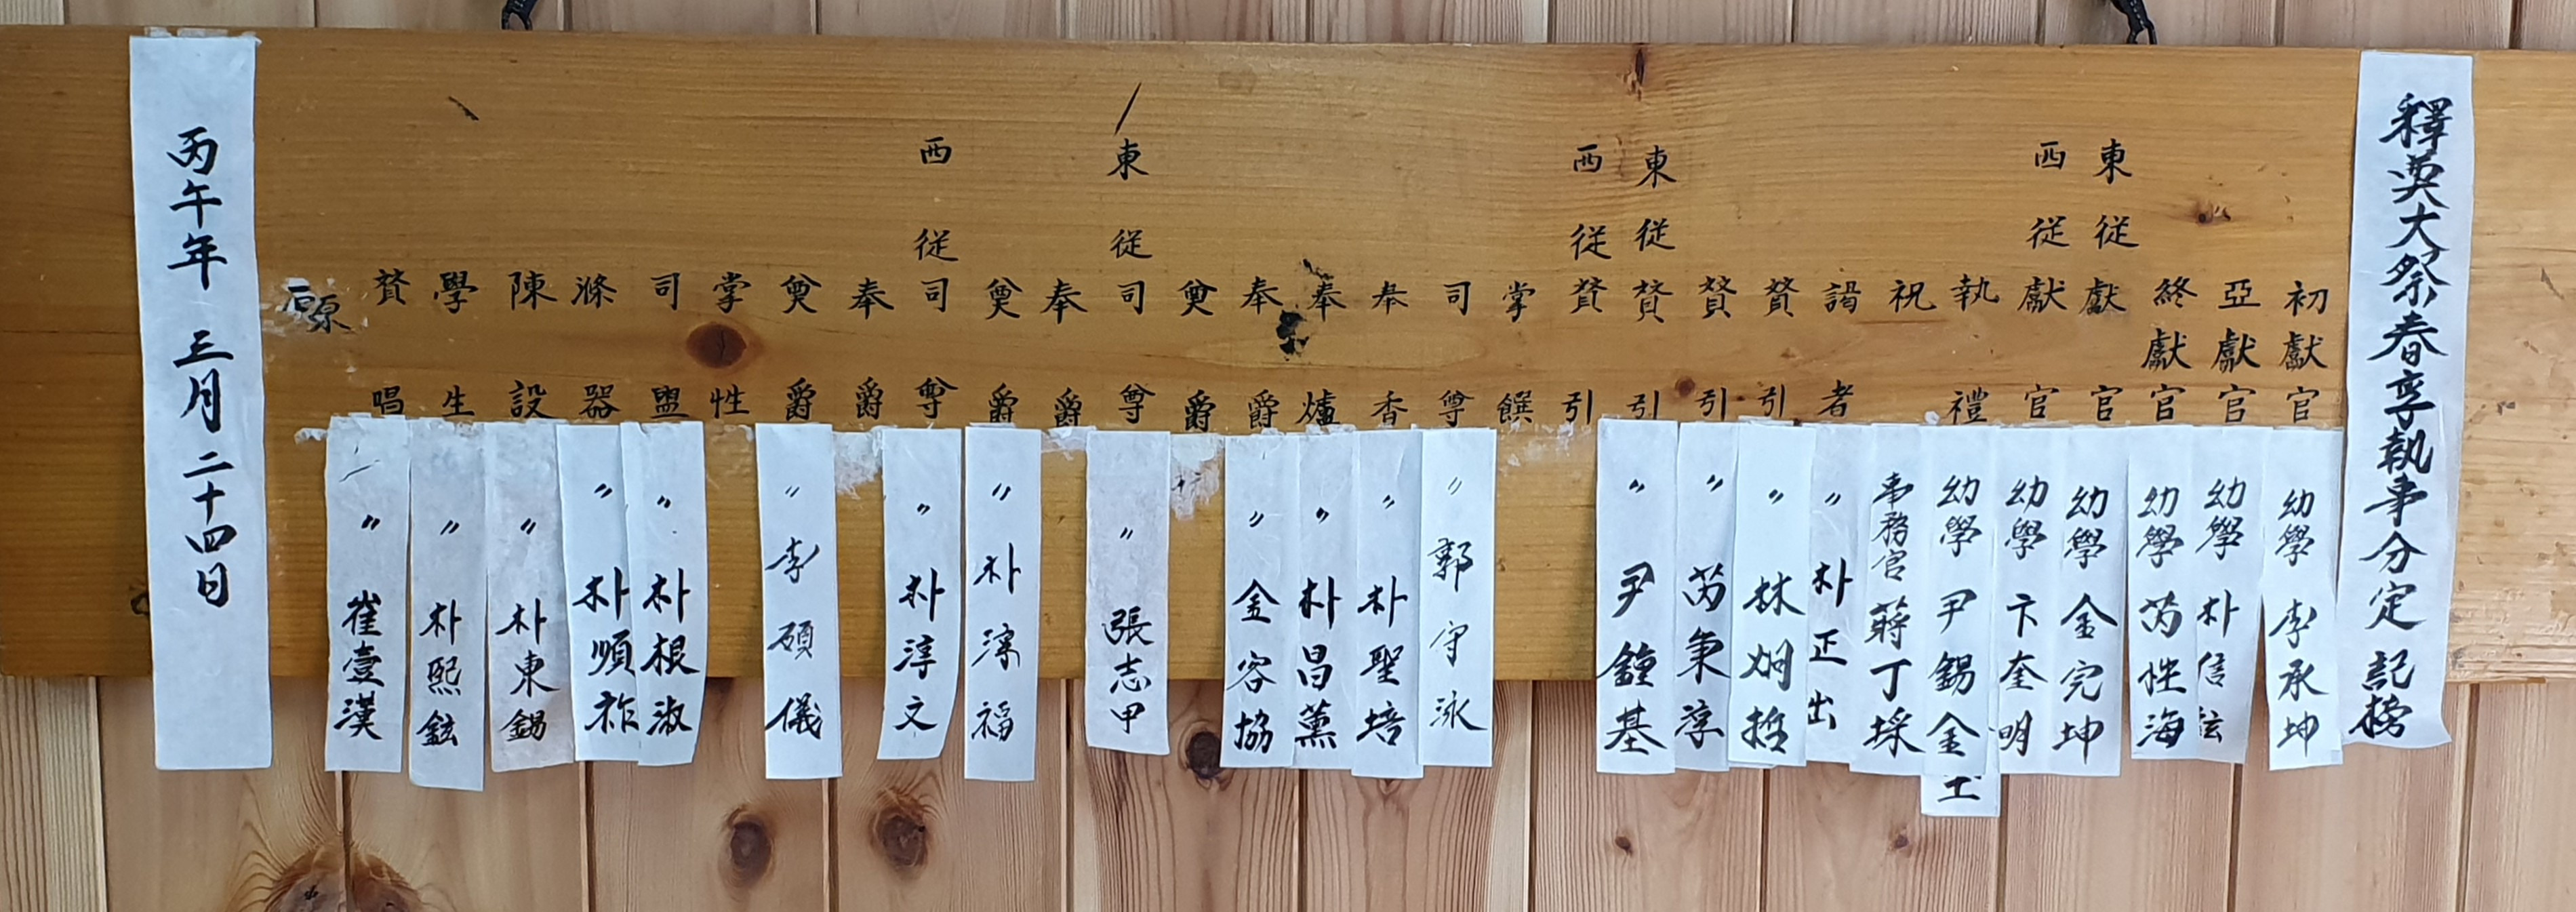 釋奠大祭春享執事分定記榜
初獻官 幼學 李承坤
亞獻官 幼學 朴信鉉
終獻官 幼學 芮性海
東從獻官 幼學 金完坤
西從獻官 幼學 卞奎明
執禮 幼學 尹錫金
祝 事務官 蔣丁埰
謁者 〃 朴正出
贊引 〃 林炯哲
贊引 〃 芮秉淳
東從贊引 〃 尹鐘基
西從贊引
掌饌
司尊 〃 郭守泳
奉香 〃 朴聖培
奉爐 〃 朴昌薰
奉爵 〃 金容協
奠爵
東從司尊 〃 張志甲
奉爵
奠爵 〃 朴淳福
西從司尊 〃 朴淳文
奉爵
奠爵 〃 李碩儀
掌牲
司盥 〃 朴根淑
滌器 〃 朴順祚
陳設 〃 朴東錫
學生 〃 朴熙鉉
贊唱 〃 崔壹漢
丙午年 三月 二十四日